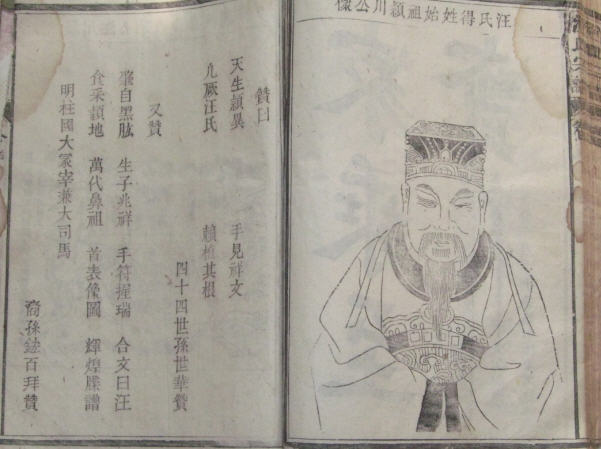 汪氏得姓始祖潁川公像
贊曰
天生穎異 手見祥文
凡厥汪氏 賴植其根
四十四世孫世華贊
又贊
發自黑肱 生子兆祥 手符握瑞 合文曰汪
食采潁地 萬代鼻祖 首表像圖 輝煌牒譜
明柱國大冢宰兼大司馬
裔孫鋐百拜贊